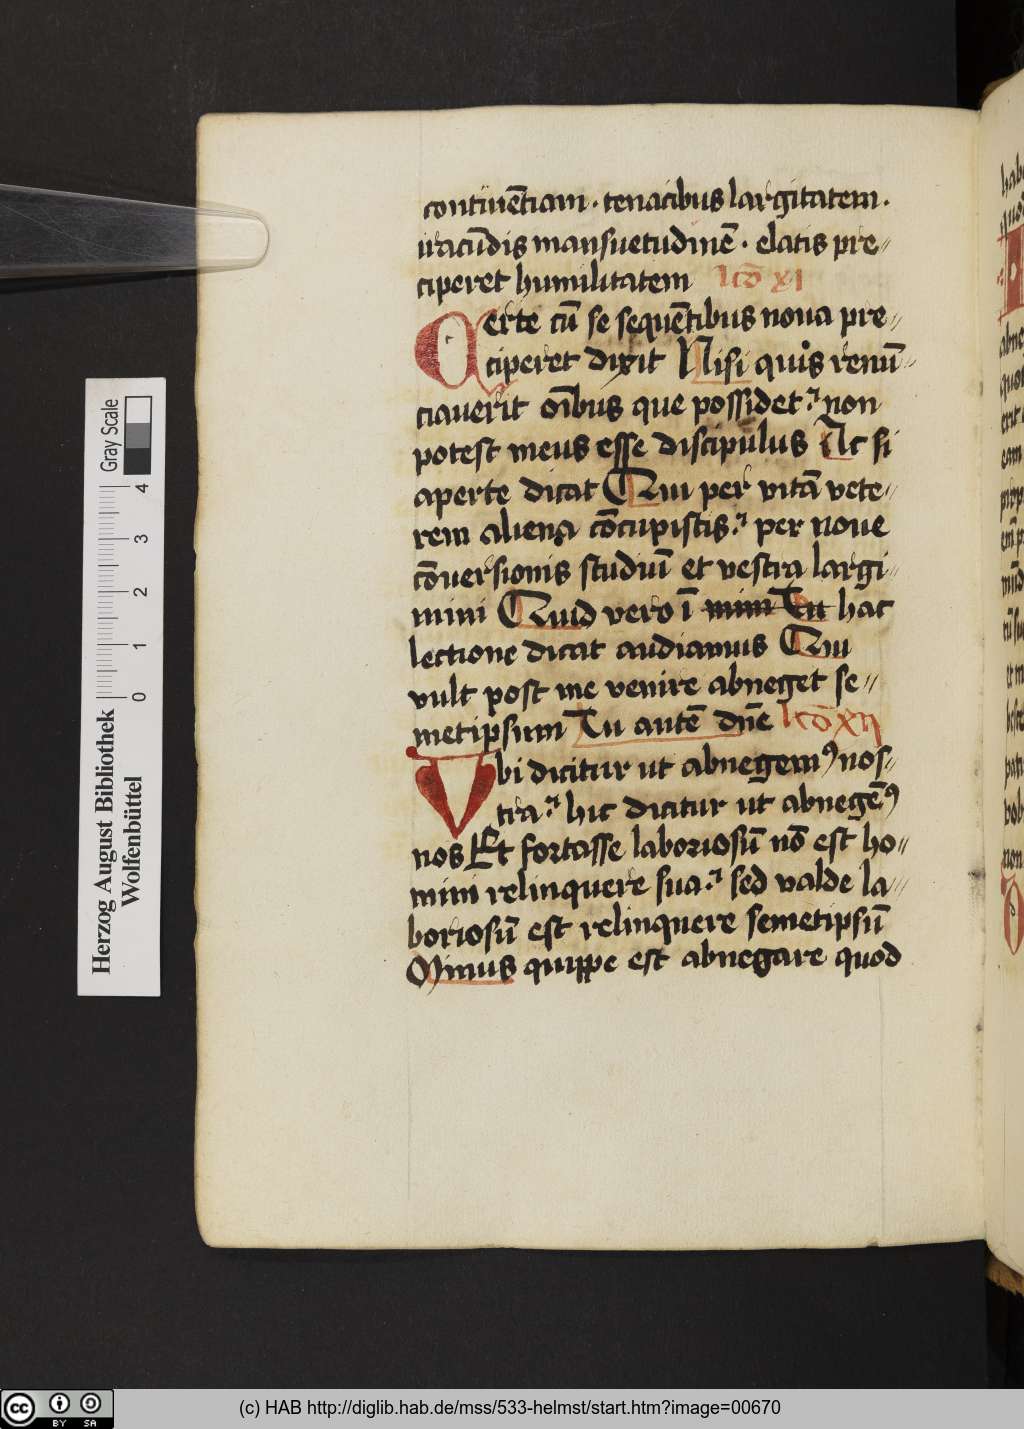 continēciam · tenacibus largitatem ·
iracūdis mansuetudinē · elatis pre〃
ciperet humilitatem lcō xi
Certe cū se sequētibus noua pre〃
ciperet dixit Nisi quis renū〃
ciauerit oībus que possidet non
potest meus esse discipulus Ac si
aperte dicat Qui per vitā vete〃
rem aliena cōcupistis per noue
cōuersionis studiū et vestra largi〃
mini Quid vero ī mini Tu hac
lectione dicat audiamus Qui
vult post me venire abneget se〃
metipsum Tu autē dn̄e lcō xii
Vbi dicitur ut abnegemꝰ nos〃
tra hic dicitur ut abnegēꝰ
nos Et fortasse laboriosū nō est ho〃
mini relinquere sua sed valde la〃
boriosū est relinquere semetipsū
Minus quippe est abnegare quod
Gray Scale
4
3
2
1
0
Herzog August Bibliothek
Wolfenbüttel
cc BY SA
(c) HAB http://diglib.hab.de/mss/533-helmst/start.htm?image=00670